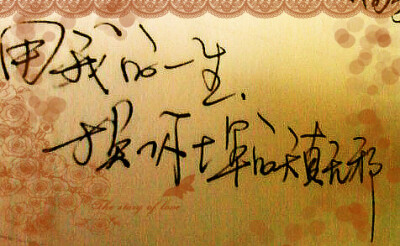 用我的一生、
换你十年的天真无邪
The story of love